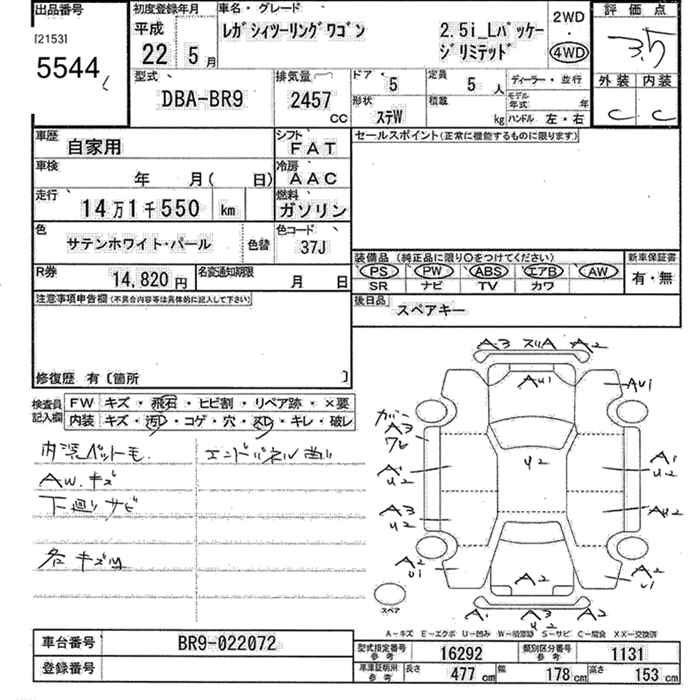 出品番号 初度登録年月 車名・グレード 評価点
[2153] 平成 レガシィツーリングワゴン 2.5i_Lパッケー 2WD 3.5
5544 22 5月 ジリミテッド 4WD
型式 排気量 ドア 5 定員 5人 ディーラー・並行 外装 内装
DBA-BR9 2457cc 形状 ステW 積載 kg モデル年式 年 C C
ハンドル 左・右
車歴 自家用 シフト FAT セールスポイント(正常に機能するものに限ります)
車検 年 月( 日) 冷房 AAC
走行 14万1千550 km 燃料 ガソリン
色 サテンホワイト・パール 色替 色コード 37J
装備品 (純正品に限り○をつけてください) 新車保証書
PS PW ABS エアB AW 有・無
SR ナビ TV カワ
R券 14,820円 名変通知期限 月 日
後日品 スペアキー
注意事項申告欄(不具合内容等は具体的に記入して下さい)
修復歴 有〔箇所 〕
検査員記入欄 FW キズ・飛石・ヒビ割・リペア跡・×要
内装 キズ・汚レ・コゲ・穴・スレ・キレ・破レ
内装ペット毛 エンドパネル曲り
AW.キズ
下廻リサビ
各キズ凹
A3 スリA A2
AU1 AU1
カバー
A3
ワレ
A1 U2 U2 A1 U2
A3 U2 AU2
A2 U1 A2 A2 U1
A1 A3 U2 A2
スペア
A-キズ E-エクボ U-凹み W-補修跡 S-サビ C-腐食 XX-交換済
車台番号 BR9-022072
登録番号
型式指定番号 参考 16292 類別区分番号 参考 1131
車庫証明用 参考 長さ 477cm 幅 178cm 高さ 153cm